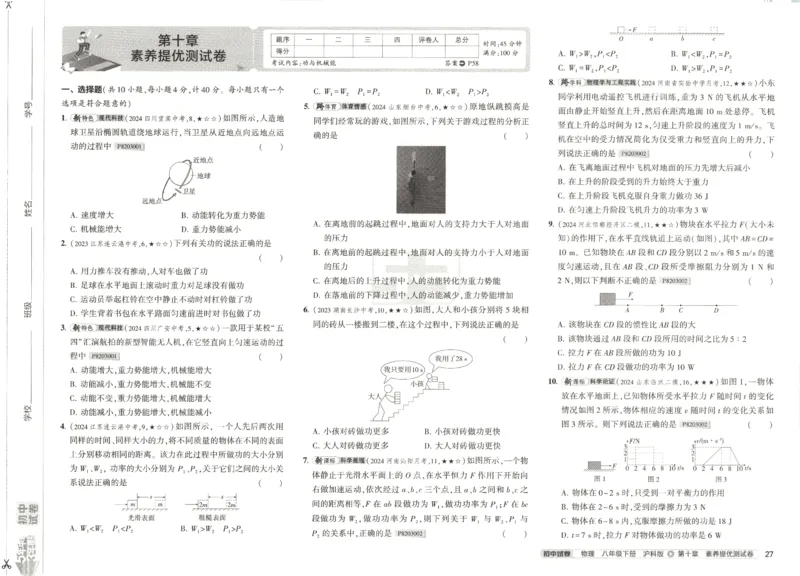 第十章
素养提优测试卷
题序 一 二 三 四 评卷人 总分
得分
时间:45 分钟
满分:100 分
考试内容:功与机械能
答案 P58
一、选择题(共 10 小题,每小题 4 分,计 40 分。每小题只有一个
选项是符合题意的)
1. 新特色 现代科技 (2024 四川宜宾中考,8,★☆☆)如图所示,人造地
球卫星沿椭圆轨道绕地球运行,当卫星从近地点向远地点运
动的过程中 P8203001 ( )
近地点
地球
卫星
远地点
A. 速度增大 B. 动能转化为重力势能
C. 机械能增大 D. 重力势能减小
2. (2023 江苏连云港中考,6,★☆☆)下列有关功的说法正确的是
( )
A. 用力推车没有推动,人对车也做了功
B. 足球在水平地面上滚动时重力对足球没有做功
C. 运动员举起杠铃在空中静止不动时对杠铃做了功
D. 学生背着书包在水平路面匀速前进时对书包做了功
3. 新特色 现代科技 (2024 四川广安中考,5,★☆☆)一款用于某校“五
四”汇演航拍的新型智能无人机,在它竖直向上匀速运动的过
程中 P8203001 ( )
A. 动能增大,重力势能增大,机械能增大
B. 动能减小,重力势能增大,机械能不变
C. 动能不变,重力势能增大,机械能增大
D. 动能减小,重力势能增大,机械能减小
4. (2024 江苏连云港中考,9,★☆☆)如图所示,一个人先后两次用
同样的时间、同样大小的力,将不同质量的物体在不同的表面
上分别移动相同的距离。该力在此过程中所做功的大小分别
为 W₁、W₂,功率的大小分别为 P₁、P₂,关于它们之间的大小关
系说法正确的是 ( )
s s
m m 2m 2m
光滑表面 粗糙表面
A. W₁<W₂ P₁<P₂ B. W₁>W₂ P₁>P₂
C. W₁=W₂ P₁=P₂ D. W₁<W₂ P₁>P₂
5. 跨体育 体育情感 (2024 山东烟台中考,6,★☆☆)原地纵跳摸高是
同学们经常玩的游戏,如图所示,下列关于游戏过程的分析正
确的是 ( )
A. 在离地前的起跳过程中,地面对人的支持力大于人对地面
的压力
B. 在离地前的起跳过程中,地面对人的支持力小于人对地面
的压力
C. 在离地后的上升过程中,人的动能转化为重力势能
D. 在落地前的下降过程中,人的动能减少,重力势能增加
6. (2023 湖南长沙中考,10,★★☆)如图,大人和小孩分别将 5 块相
同的砖从一楼搬到二楼,在这个过程中,下列说法正确的是
( )
我用了28 s
我只要用10 s
小孩
大人
A. 小孩对砖做功更多 B. 小孩对砖做功更快
C. 大人对砖做功更多 D. 大人对砖做功更快
7. 新课标 科学推理 (2024 河南汝阳月考,11,★★☆)如图所示,一个物
体静止于光滑水平面上的 O 点,在水平恒力 F 作用下开始向
右做加速运动,依次经过 a、b、c 三个点,且 a、b 之间和 b、c 之
间的距离相等,F 在 ab 段做功为 W₁,做功功率为 P₁;F 在 bc
段做功为 W₂,做功功率为 P₂,则下列关于 W₁ 与 W₂、P₁ 与
P₂ 的关系中,正确的是 P8203002 ( )
F
O a b c
A. W₁>W₂,P₁<P₂ B. W₁<W₂,P₁=P₂
C. W₁=W₂,P₁<P₂ D. W₁>W₂,P₁=P₂
8. 跨学科 物理学与工程实践 (2024 河南省实验中学月考,12,★★☆)小东
同学利用电动遥控飞机进行训练,重为 3 N 的飞机从水平地
面由静止开始竖直上升,然后在距离地面 10 m 处悬停。飞机
竖直上升的总时间为 12 s,匀速上升阶段的速度为 1 m/s。飞
机在空中的受力情况简化为仅受重力和竖直向上的升力,下
列说法正确的是 P8203002 ( )
A. 在飞离地面过程中飞机对地面的压力先增大后减小
B. 在上升的阶段受到的升力始终大于重力
C. 在上升阶段飞机克服自身重力做功 36 J
D. 在匀速上升阶段飞机升力的功率为 3 W
9. (2024 河北邯郸经开区二模,11,★★☆)物块在水平拉力 F(大小未
知)的作用下,在水平直线轨道上运动(如图),其中 AB=CD=
10 m。已知物块在 AB 段和 CD 段分别以 2 m/s 和 5 m/s 的速
度匀速运动,且在 AB 段、CD 段所受摩擦阻力分别为 1 N 和
2 N,则以下判断不正确的是 P8203002 ( )
F
A B C D
A. 该物块在 CD 段的惯性比 AB 段的大
B. 该物块通过 AB 段和 CD 段所用的时间之比为 5∶2
C. 拉力 F 在 AB 段所做的功为 10 J
D. 拉力 F 在 CD 段做功的功率为 10 W
10. 新课标 科学论证 (2024 山东临沂二模,16,★★★)如图 1,一物体
放在水平地面上,已知物体所受水平拉力 F 随时间 t 的变化
情况如图 2 所示,物体相应的速度 v 随时间 t 的变化关系如
图 3 所示。则下列说法正确的是 P8203002 ( )
F F/N v/(m·s⁻¹)
3 2 1 3 2 1
0 2 4 6 8 10 t/s 0 2 4 6 8 10 t/s
图 1 图 2 图 3
A. 物体在 0~2 s 时,只受到一对平衡力的作用
B. 物体在 2~6 s 时,受到的摩擦力为 3 N
C. 物体在 6~8 s 内,克服摩擦力所做的功是 18 J
D. t=7 s 时,拉力 F 对物体做功的功率是 6 W
学号
姓名
班级
学校
初中
试卷
初中试卷 物理 八年级下册 沪科版 第十章 素养提优测试卷 27